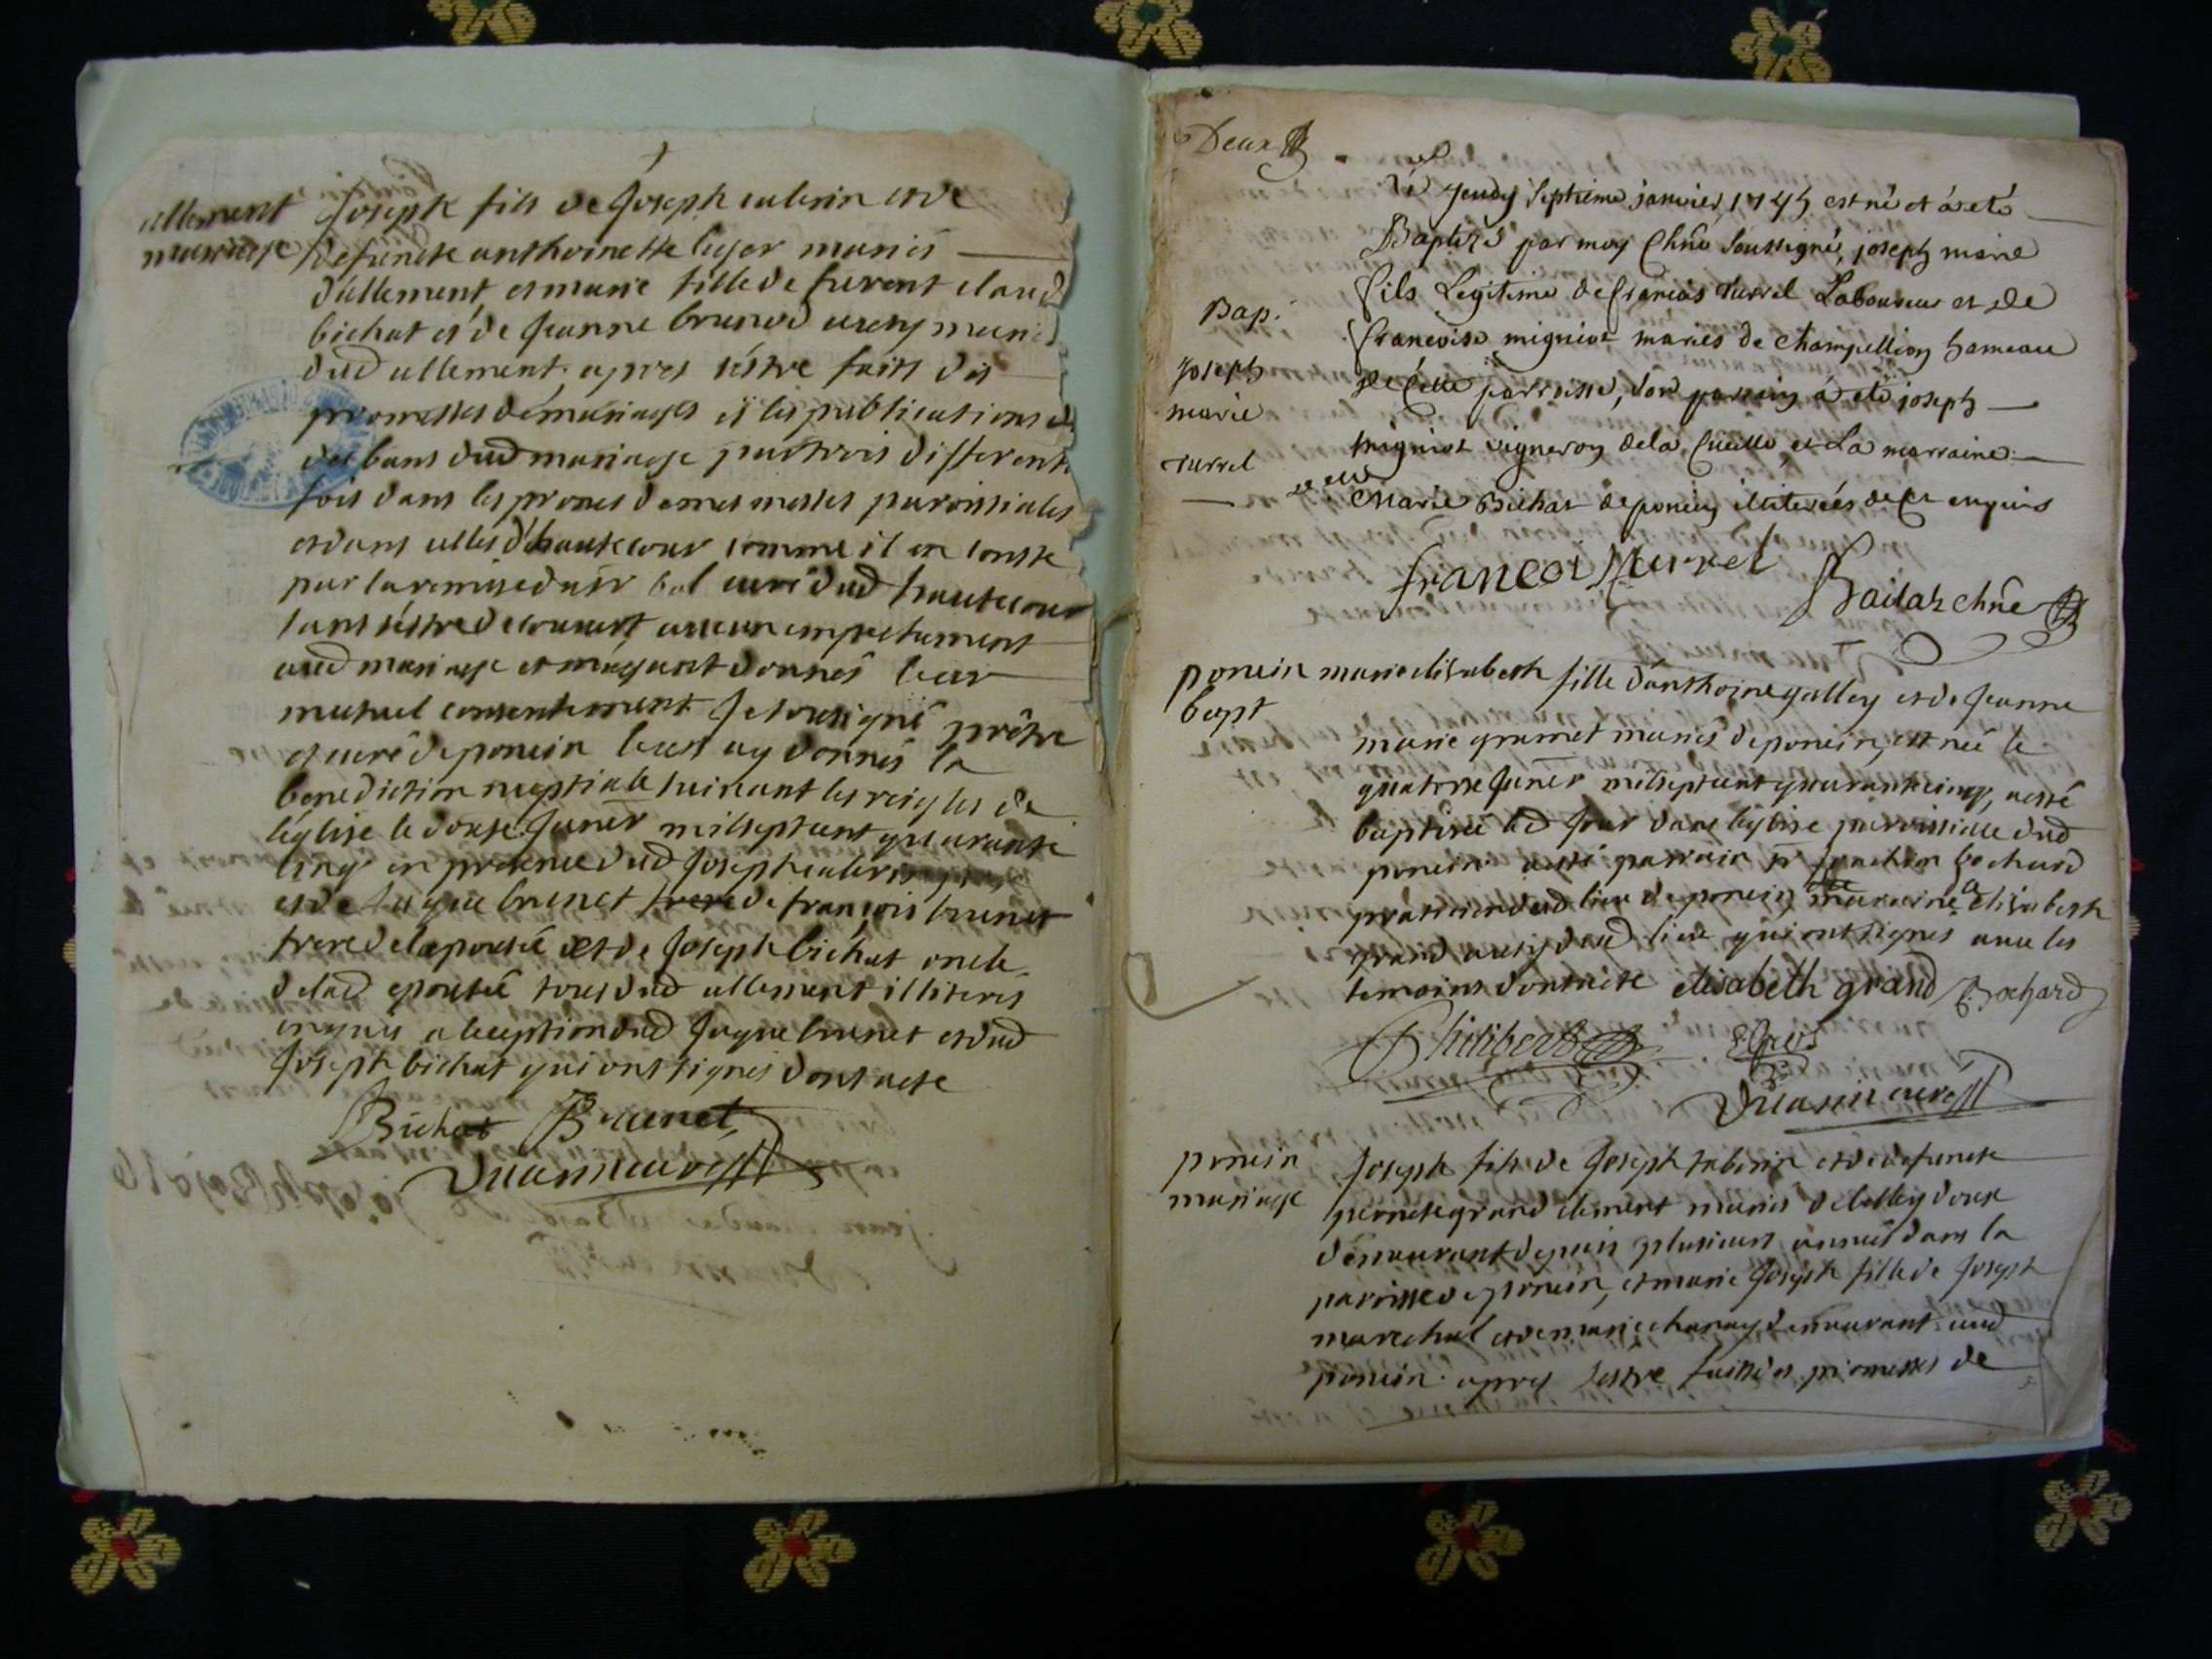 allement
mariage
Joseph fils de Joseph et de
defuncte anthoinette leger mariés
d'allement, et marie fille de furent claud
bichat et de Jeanne brunod auссy mari
dud allement. apres s'éstre faits des
promesses de mariages et les publications d
des bans dud mariage par trois differents
fois dans les prones de mes messes paroissiales
et dans celles d'hautecour comme il en conste
par la remise du sr curé dud hautecour
sans s'éstre decouvert aucun empechement
aud mariage et m'ayant donnés leur
mutuel consentement Je sousigné prêtre
et curé de poncin leur ay donnés la
benediction nuptiale suivant les reigles de
l'église le douse Janer milseptcent quarante
cinq en presence dud Joseph
et de Jaque brunet frere de françois brunet
frere de lapousée et de Joseph bichat oncle
de lad epousée tous dud allement illiteres
enquis a lexeption dud Jaque brunet et dud
Joseph bichat qui ont signés dont acte
Bichat Brunet
curé
Deux
Le Jeudy septieme janvier 1745 est né et a eté
Baptizé par moy Chne soussigné, joseph marie
Bap.
fils Legitime de francois Turrel Laboureur et de
francoise migniot mariés de Champeillon hameau
Joseph
marie
Turrel
de cette parroisse, son parrin a eté joseph
migniot vigneron de la Cueille et La marraine
Marie Bichat de poncin illiterées de ce enquis
francoi Turrel Bailat chne
poncin
bapt
marie elisabeth fille d'anthoine galley et de Jeanne
marie gramet mariés de poncin, est née le
quatorse Janer milseptcent quarantecinq, a esté
baptisée led Jour dans léglise paroissialle dud
poncin a esté parrain sr Joachim bochard
praticien dud lieu de poncin, marraine elisabeth
grand aussy dud lieu qui ont signés avec les
temoins dont acte elisabeth grand Bochard
Philibert
curé
poncin
mariage
Joseph fils de Joseph tabouin et de defuncte
pernete grand clement mariés
demeurant depuis plusieurs années dans la
paroisse de poncin, et marie Joseph fille de Joseph
marechal et de marie charnay demeurant aud
poncin. apres s'estre faittes des promesses de